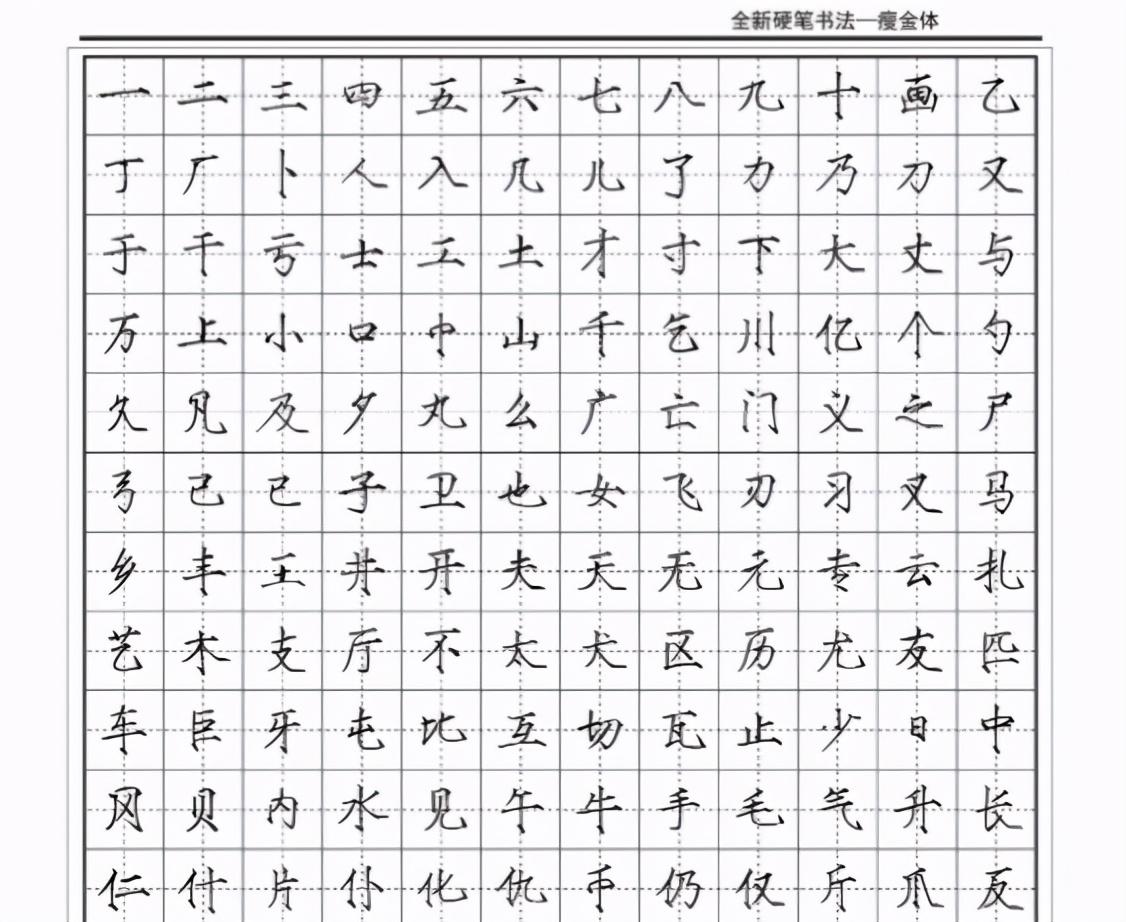 全新硬笔书法—瘦金体
一 二 三 四 五 六 七 八 九 十 画 乙
丁 厂 卜 人 入 几 儿 了 力 乃 刀 又
于 干 亏 士 工 土 才 寸 下 大 丈 与
万 上 小 口 中 山 千 乞 川 亿 个 勺
久 凡 及 夕 丸 么 广 亡 门 义 之 尸
弓 己 已 子 卫 也 女 飞 刃 习 叉 马
乡 丰 王 井 开 夫 天 无 元 专 云 扎
艺 木 支 厅 不 太 犬 区 历 尤 友 匹
车 巨 牙 屯 比 互 切 瓦 止 少 日 中
冈 贝 内 水 见 午 牛 手 毛 气 升 长
仁 什 片 仆 化 仇 币 仍 仅 斤 爪 反